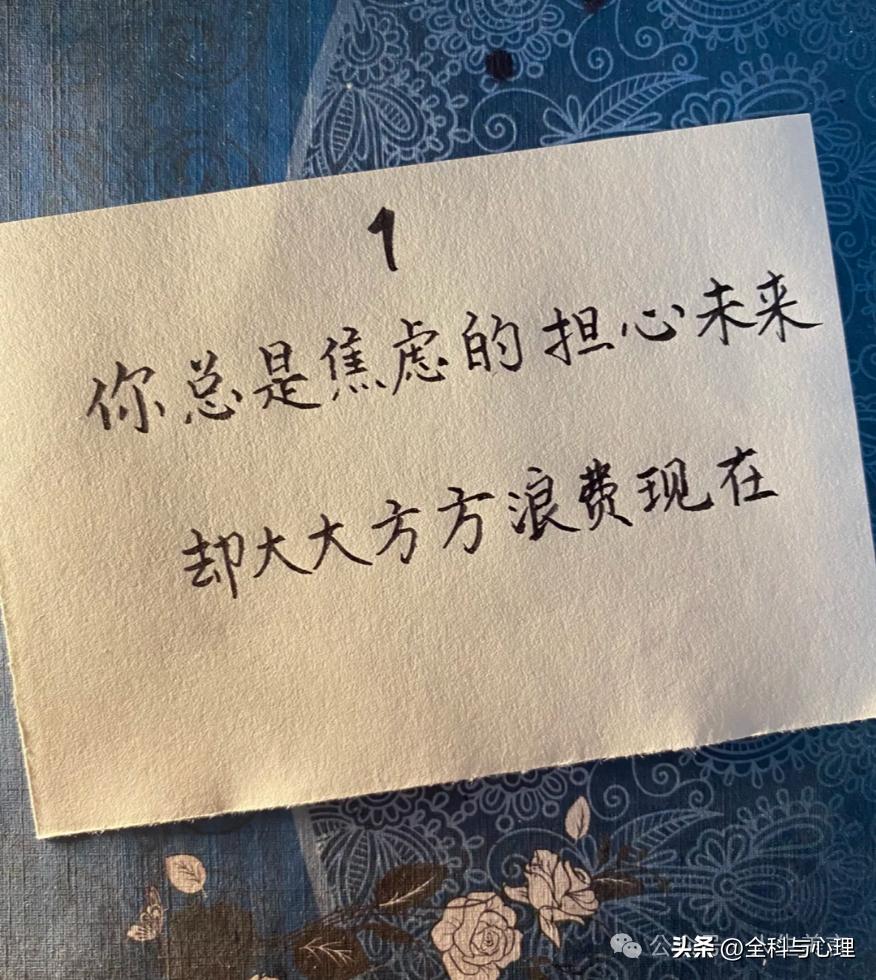 1
你总是焦虑的担心未来
却大大方方浪费现在
头条 @全科与心理